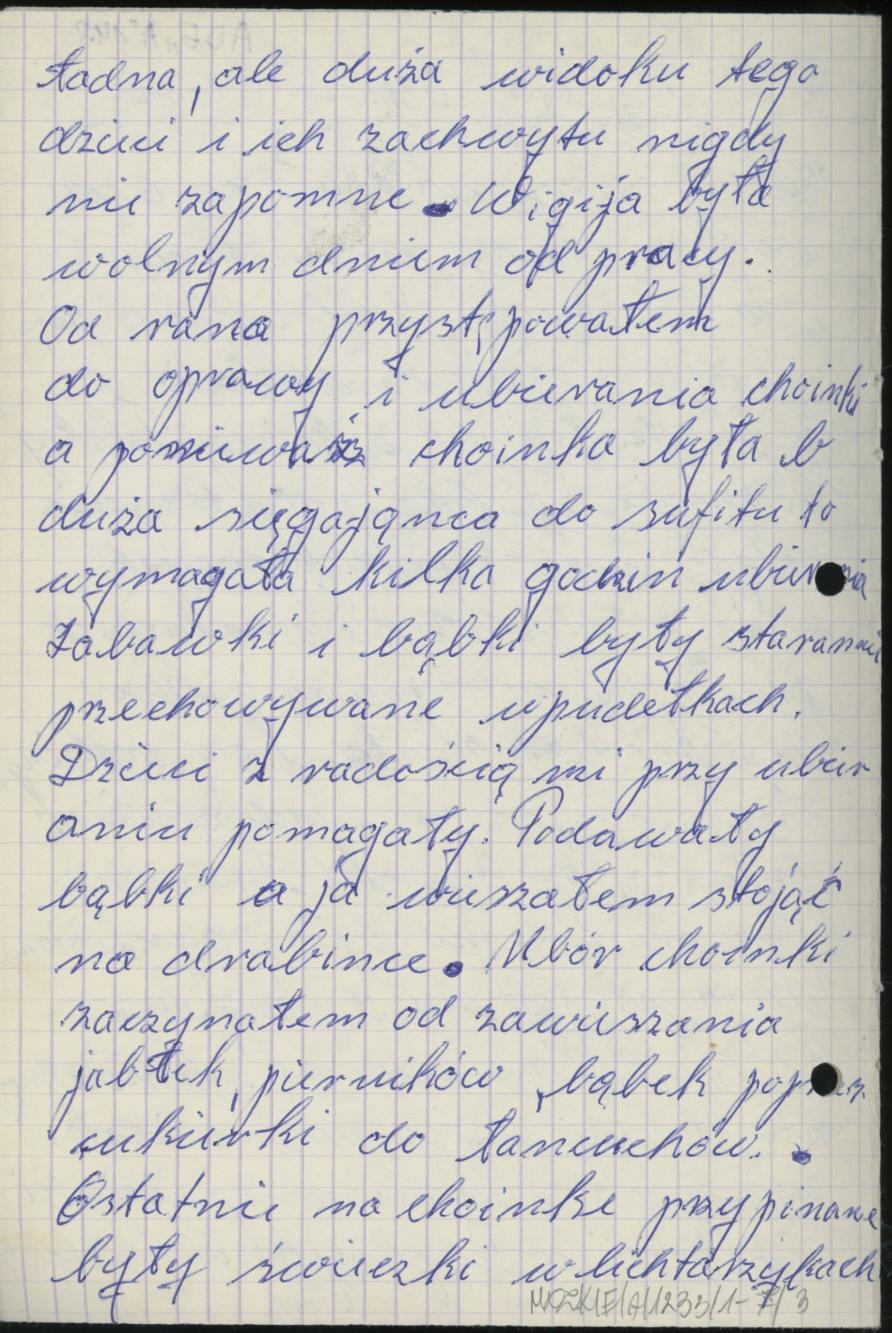 ładna, ale duża widoku tego
dzieci i ich zachwytu nigdy
nie zapomne. Wigija była
wolnym dniem od pracy.
Od rana przystępowałem
do oprawy i ubierania choinki
a ponieważ choinka była b
duża sięgająnca do sufitu to
wymagała kilka godzin ubierania
Zabawki i bąbki były starannie
przechowywane w pudełkach.
Dzieci z radością mi przy ubier
aniu pomagały. Podawały
bąbki a ja wieszałem stojąć
na drabince. Ubór choinki
zaczynałem od zawieszania
jabłek, pierników, bąbek poprzez
cukierki do łańcuchów.
Ostatnie na choinke przypinane
były świeczki w lichtarzykach